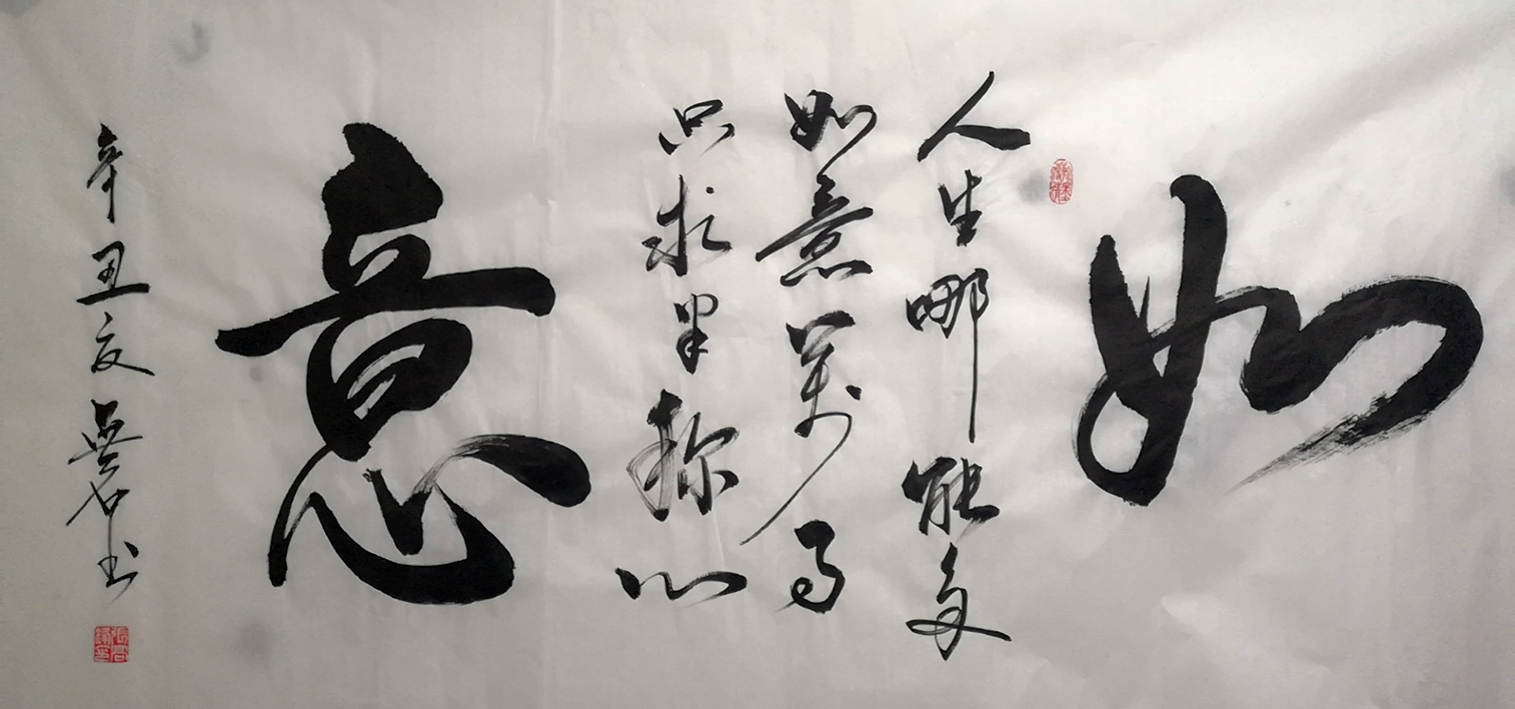 如
人生哪能多
如意萬事
只求半称心
意
辛丑夏書